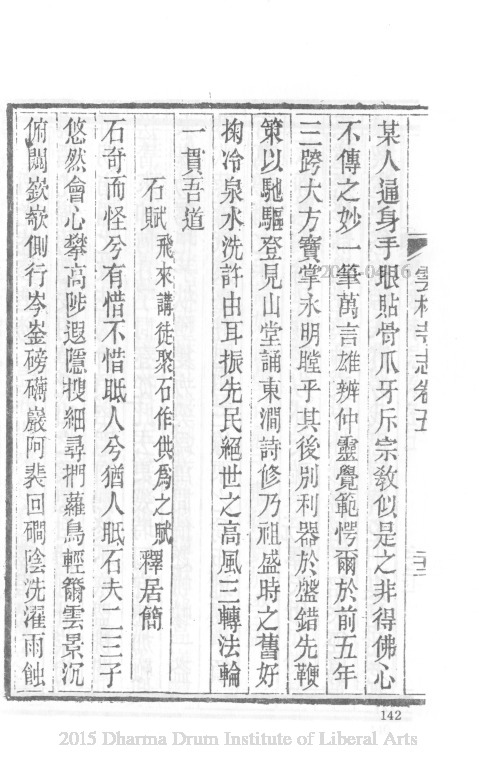 雲林寺志卷五
某人通身手眼貼骨爪牙斥宗教似是之非得佛心
不傳之妙一筆萬言雄辨仲靈覺範愕爾於前五年
三跨大方寶掌永明瞠乎其後別利器於盤錯先鞭
策以馳驅登見山堂誦東澗詩修乃祖盛時之舊好
掬冷泉水洗許由耳振先民絕世之高風三轉法輪
一貫吾道
石賦飛來講徒聚石作供為之賦 釋居簡
石奇而怪兮有惜不惜眂人兮猶人眂石夫二三子
悠然會心攀高陟遐隱搜細尋捫蘿鳥輕籋雲景沉
俯闞嶔嵚側行岑崟磅礴巖阿裴回磵陰洗濯雨蝕
142
2015 Dharma Drum Institute of Liberal Arts